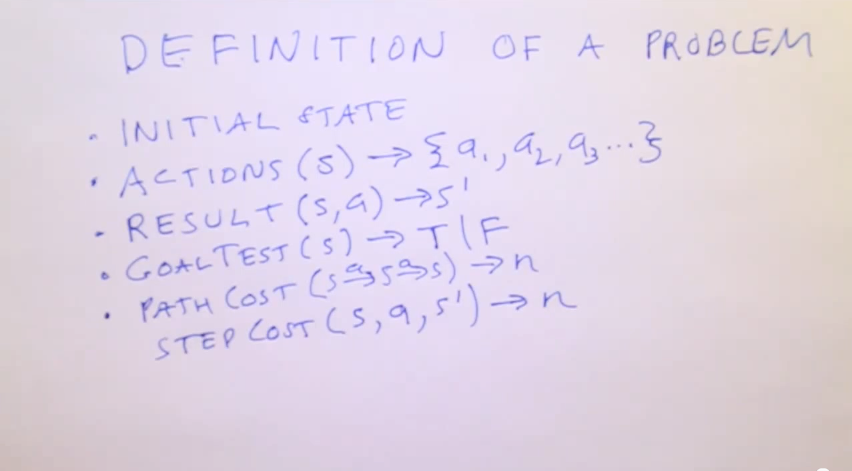 DEFINITION OF A PROBLEM
• INITIAL STATE
• ACTIONS (s) → {a₁, a₂, a₃...}
• RESULT (s, a) → s'
• GOALTEST (s) → T|F
• PATH COST (s →ᵃ s →ᵃ s) → n
STEP COST (s, a, s') → n